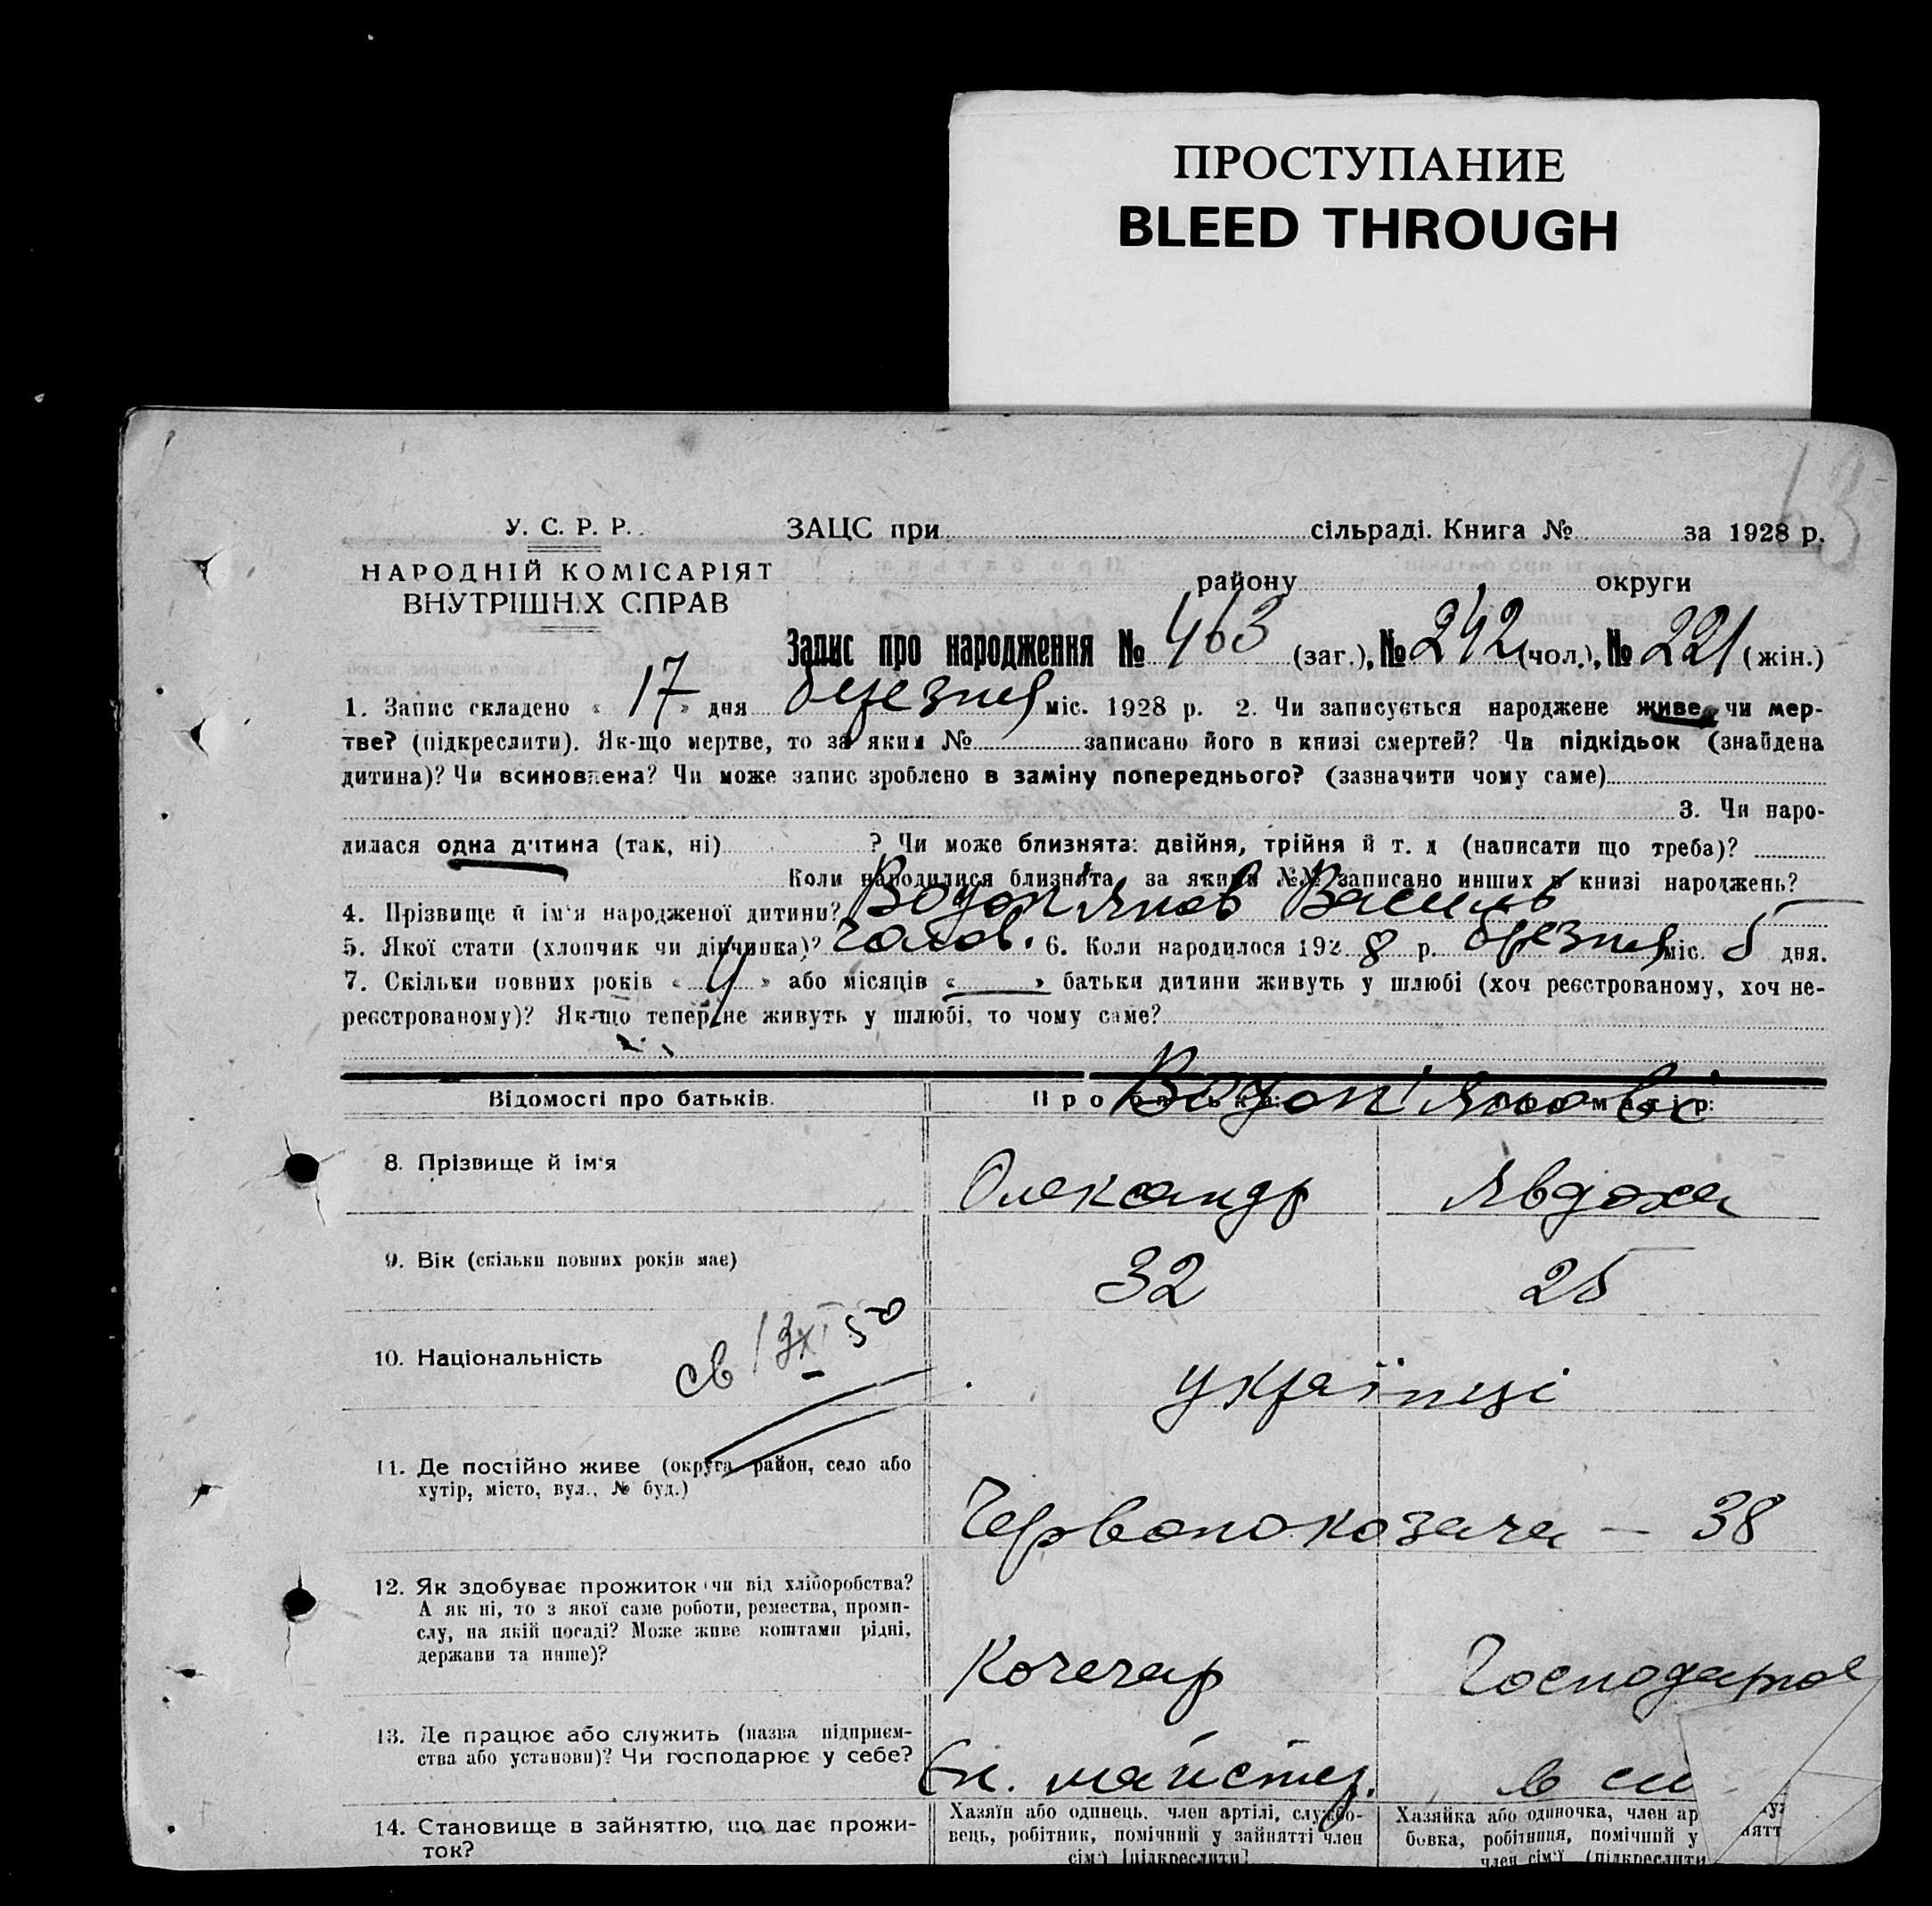 ПРОСТУПАНИЕ
BLEED THROUGH
63
У. С. Р. Р.
НАРОДНІЙ КОМІСАРІЯТ
ВНУТРІШНІХ СПРАВ
ЗАЦС при сільраді. Книга № за 1928 р.
району округи
Запис про народження № 463 (заг.), № 242 (чол.), № 221 (жін.)
1. Запис складено « 17 » дня березня міс. 1928 р. 2. Чи записується народжене живе чи мер-
тве? (підкреслити). Як-що мертве, то за яким № записано його в книзі смертей? Чи підкідьок (знайдена
дитина)? Чи всиновлена? Чи може запис зроблено в заміну попереднього? (зазначити чому саме)
3. Чи наро-
дилася одна дитина (так, ні) ? Чи може близнята: двійня, трійня й т. д (написати що треба)?
Коли народилися близнята, за якими №№ записано инших в книзі народжень?
4. Прізвище й ім'я народженої дитини? Водоп'янов Василь
5. Якої стати (хлопчик чи дівчинка)? чолов. 6. Коли народилося 1928 р. березня міс. 5 дня.
7. Скільки повних років « 4 » або місяців « — » батьки дитини живуть у шлюбі (хоч реєстрованому, хоч не-
реєстрованому)? Як-що тепер не живуть у шлюбі, то чому саме?
Відомості про батьків. Про батька: Про матір:
Водоп'янові
8. Прізвище й ім'я Олександр Явдоха
9. Вік (скільки повних років має) 32 25
св 13 XI 50
10. Національність українці
11. Де постійно живе (округа, район, село або
хутір, місто, вул., № буд.)
Червонокозача — 38
12. Як здобуває прожиток чи від хліборобства?
А як ні, то з якої саме роботи, ремества, проми-
слу, на якій посаді? Може живе коштами рідні,
держави та инше)?
Кочегар Господарює
13. Де працює або служить (назва підприєм-
ства або установи)? Чи господарює у себе?
майстер. в
14. Становище в зайняттю, що дає прожи-
ток?
Хазяїн або одинець, член артілі, службо-
вець, робітник, помічний у зайнятті член
сім'ї [підкреслити]
Хазяйка або одиночка, член ар
бовка, робітниця, помічний у
член сім'ї (підкреслити